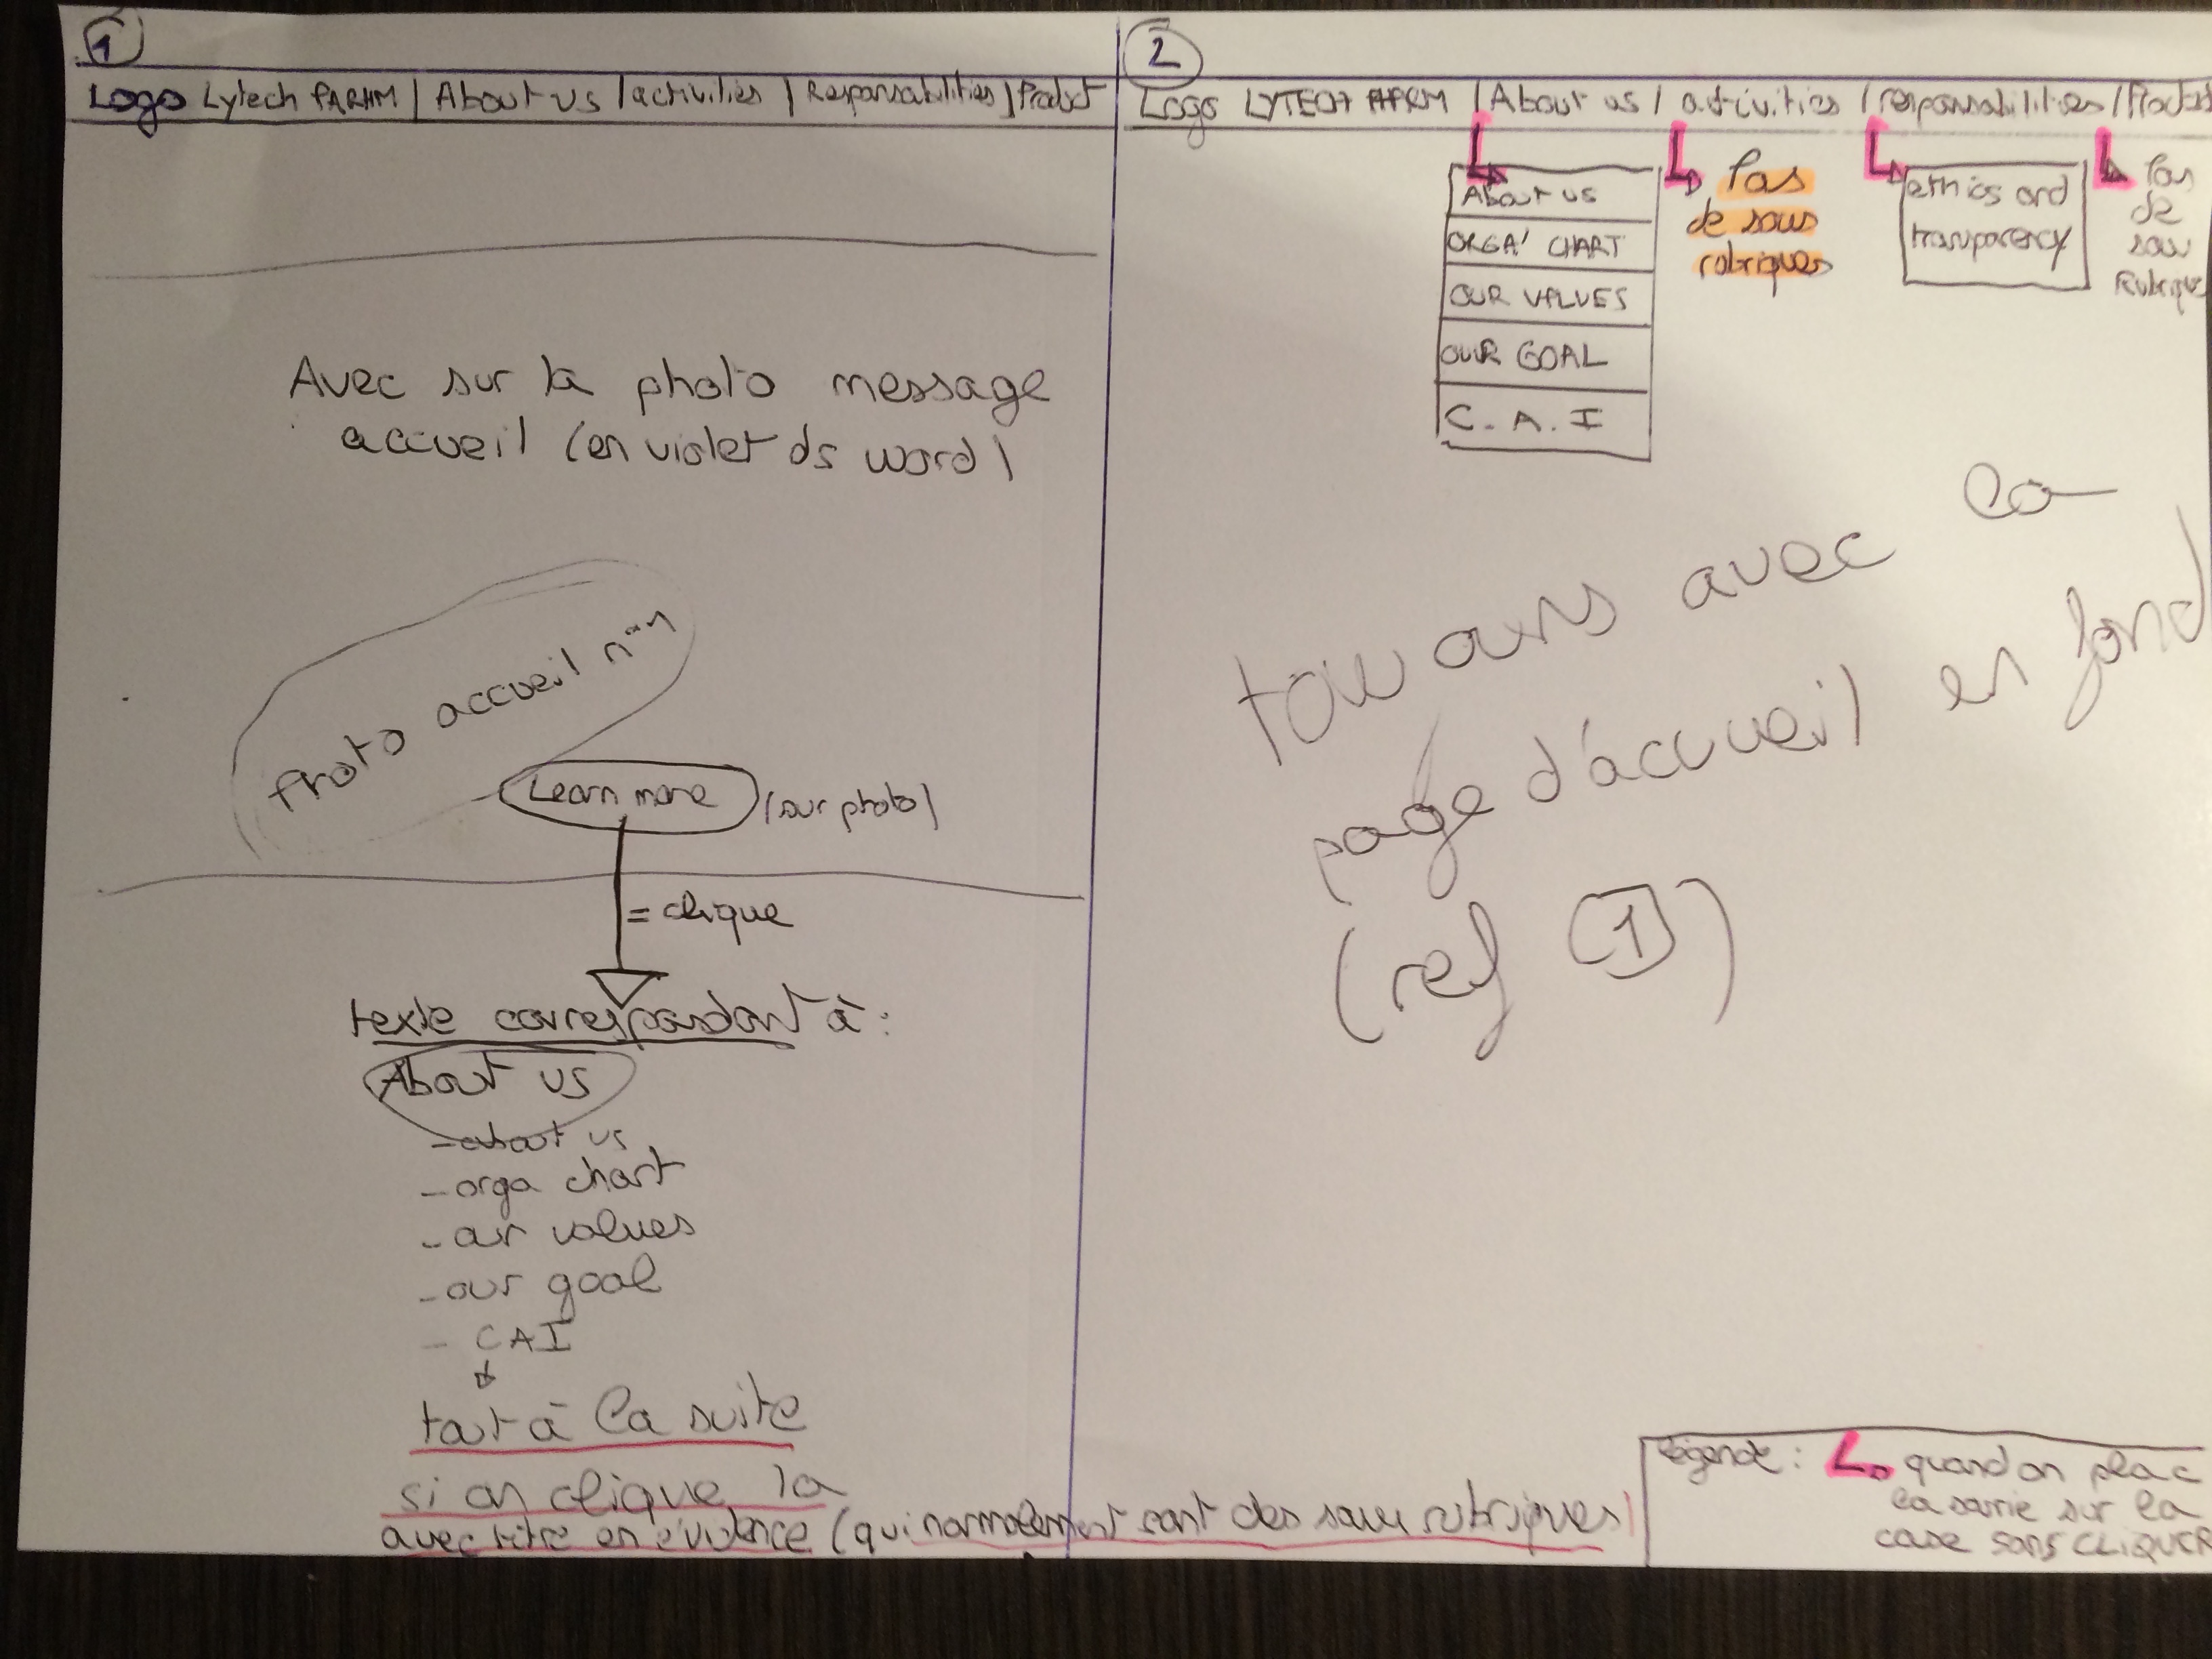 1
Logo Lytech PARHM | About us | activities | Responsabilities | Product
Avec sur la photo message
accueil (en violet ds word)
Photo accueil n°1
Learn more (sur photo)
= clique
texte correspondant à :
About us
- about us
- orga chart
- our values
- our goal
- CAI
tout à la suite
si on clique là
avec titre en évidence (qui normalement sont des sous rubriques)
2
Logo LYTECH PHARM | About us | activities | responsabilities | Product
About us
ORGA' CHART
OUR VALUES
OUR GOAL
C.A.I
Pas
de sous
rubriques
ethics and
transparency
Pas
de
sous
Rubrique
toujours avec la
page d'accueil en fond
(ref 1)
légende : quand on place
la souris sur la
case sans CLIQUER